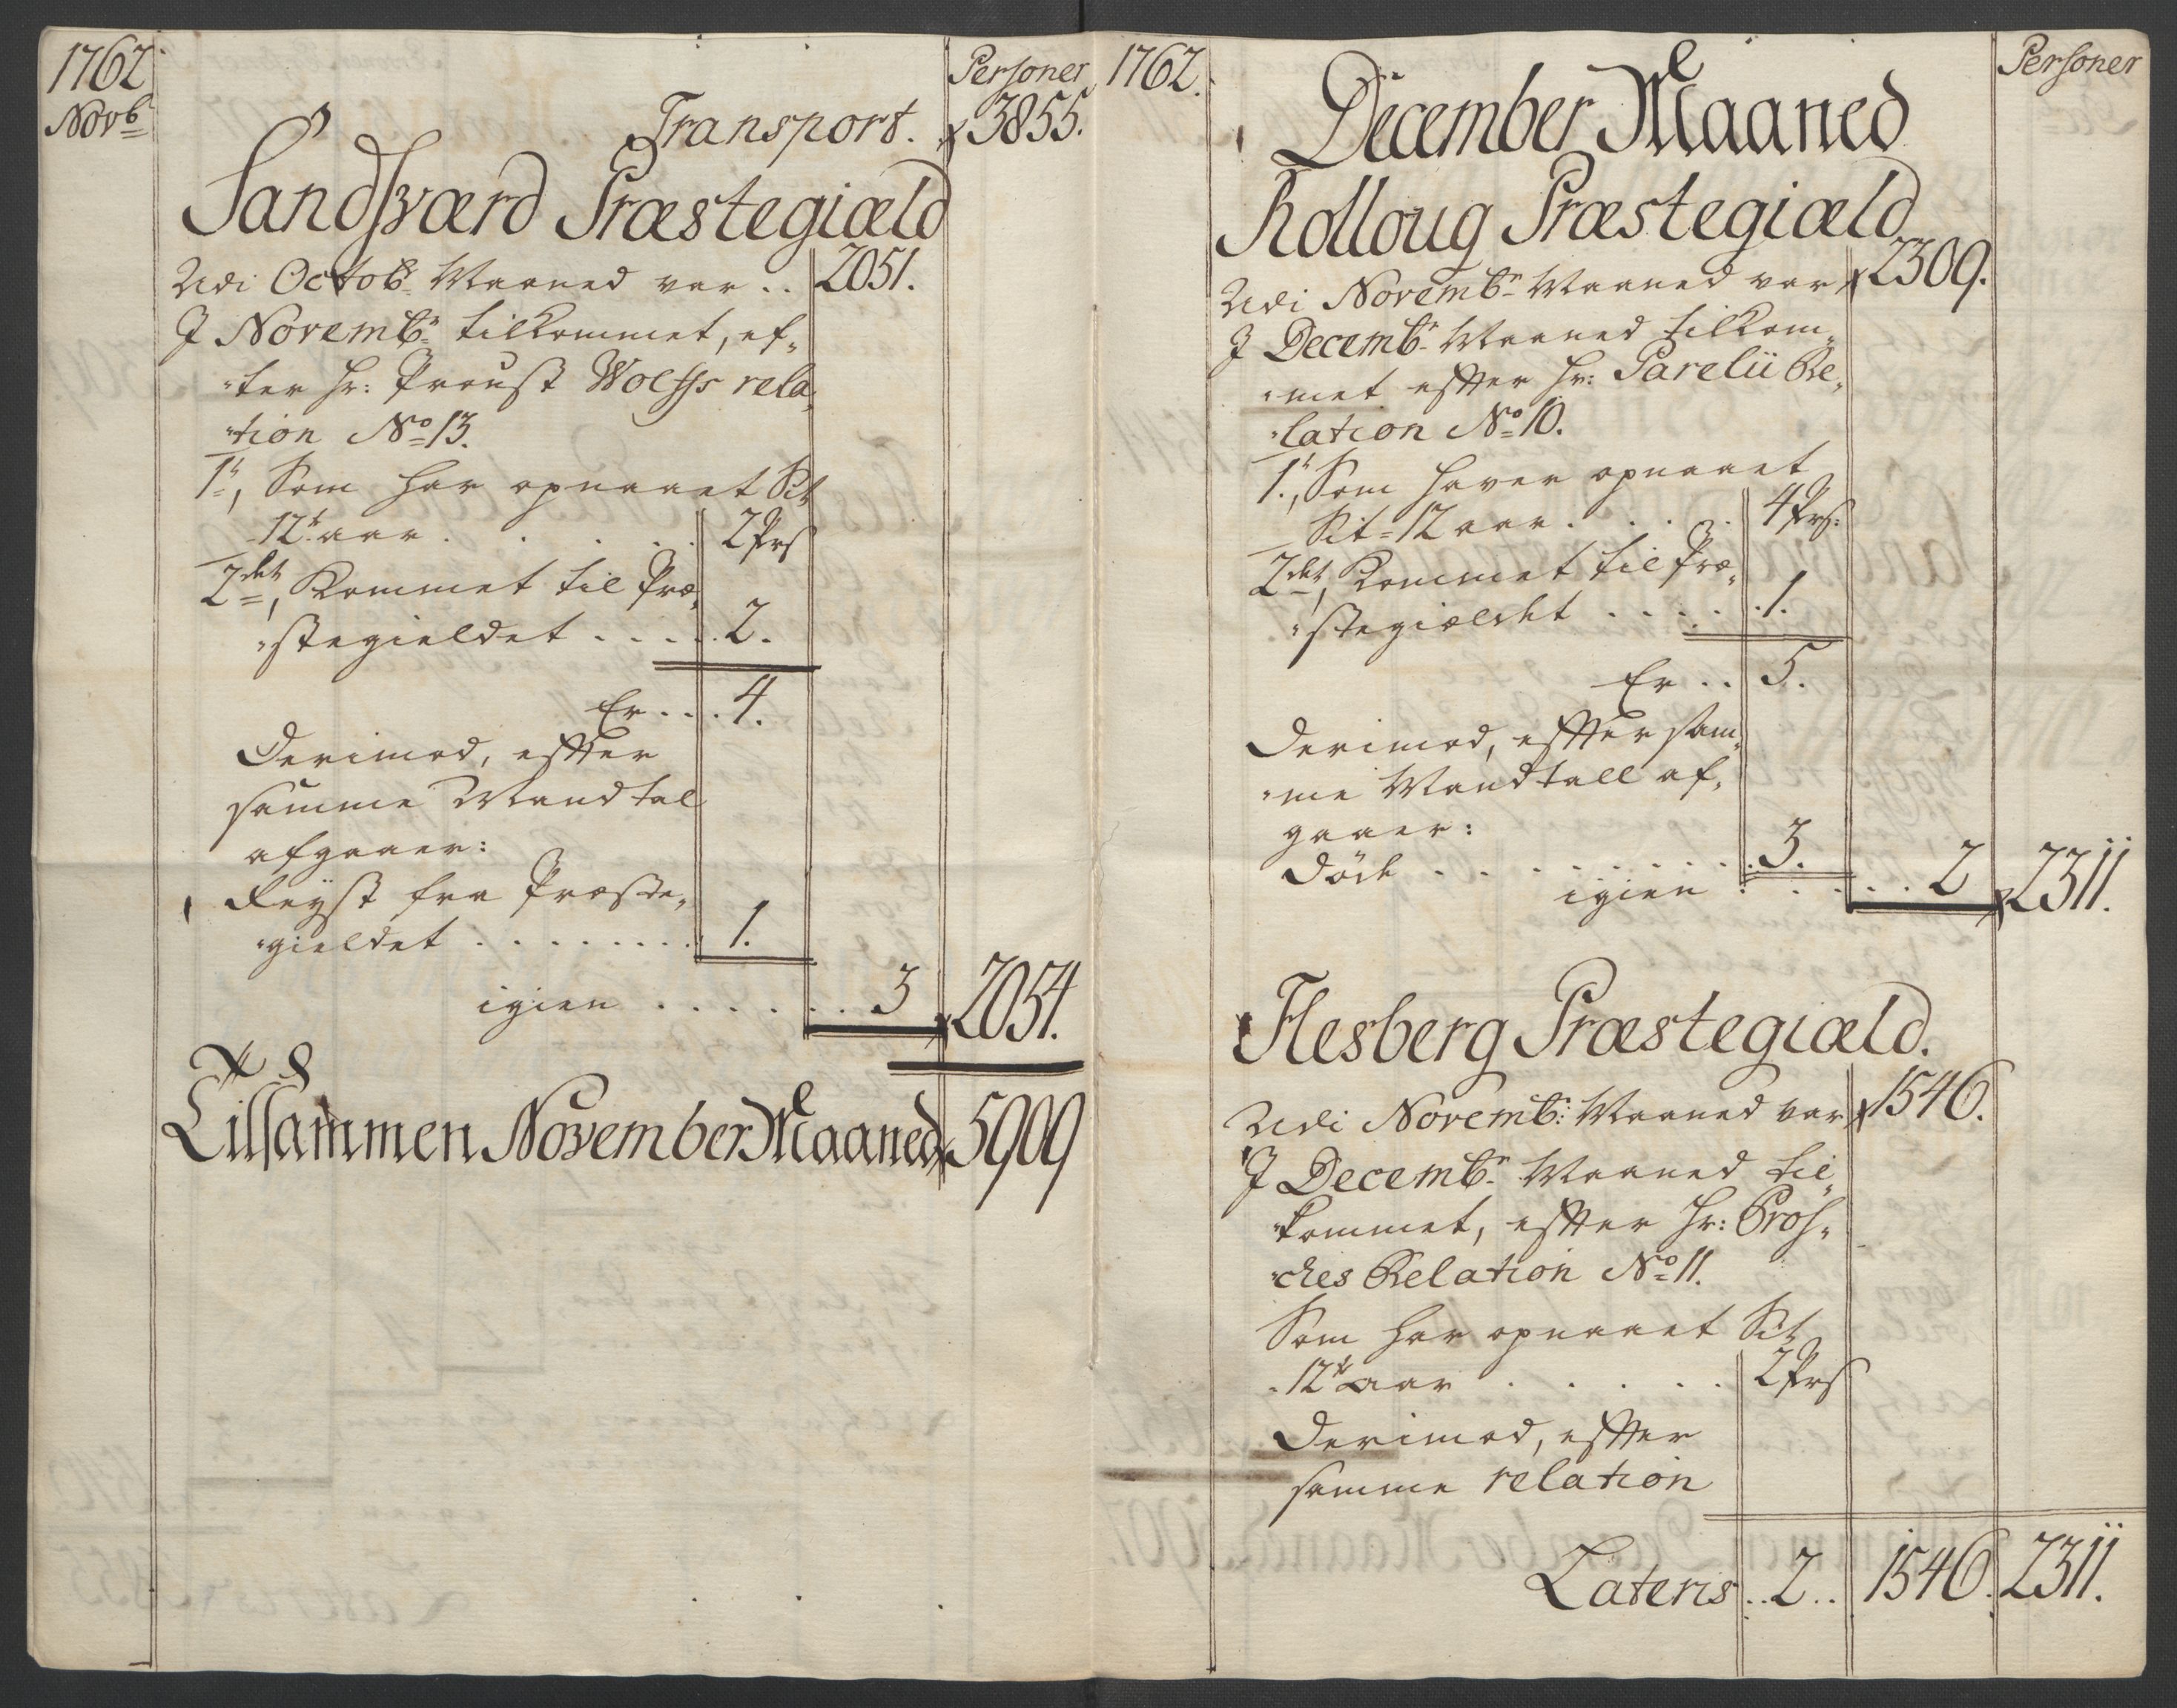 1762
Novb
Personer
Transport. 3855.
Sandsværd Præstegiæld
Udi Octob: Maaned var .. 2051.
I Novembr tilkommet, ef-
-ter Hr: Proust Wolffs rela-
-tion No 13.
1t, Som har opnaaet Sit
12te aar . . . . . 2 Prs
2det, Kommet til Præ-
-stegieldet . . . . . 2.
Er . . . 4.
Derimod, effter
samme Mandtal
afgaaer:
Reyst fra Præste-
-gieldet . . . . . . . . 1.
igien . . . . . . . 3 2054.
Tilsammen November Maaned 5909
1762.
Personer
December Maaned
Kolloug Præstegiæld
Udi Novembr Maaned var 2309.
I Decembr Maaned tilkom-
-met effter Hr: Parelii Re-
-lation No 10.
1t, Som haver opnaaet
Sit 12 aar . . . . 4 Prs:
2det, Kommet til Præ-
-stegiældet . . . . . . 1.
Er . . 5.
Derimod, effter sam-
-me Mandtall af-
gaaer:
Döde . . . . . . . . 3.
igien . . . . . . 2 2311.
Flesberg Præstegiæld.
Udi Novemb: Maaned var 1546.
I Decembr Maaned til-
-kommet, effter Hr: Bros-
-ches Relation No 11.
Som har opnaaet Sit
12te aar . . . . . 2 Prs
Derimod, effter
samme relation
Lateris . . 2 . . 1546. 2311.